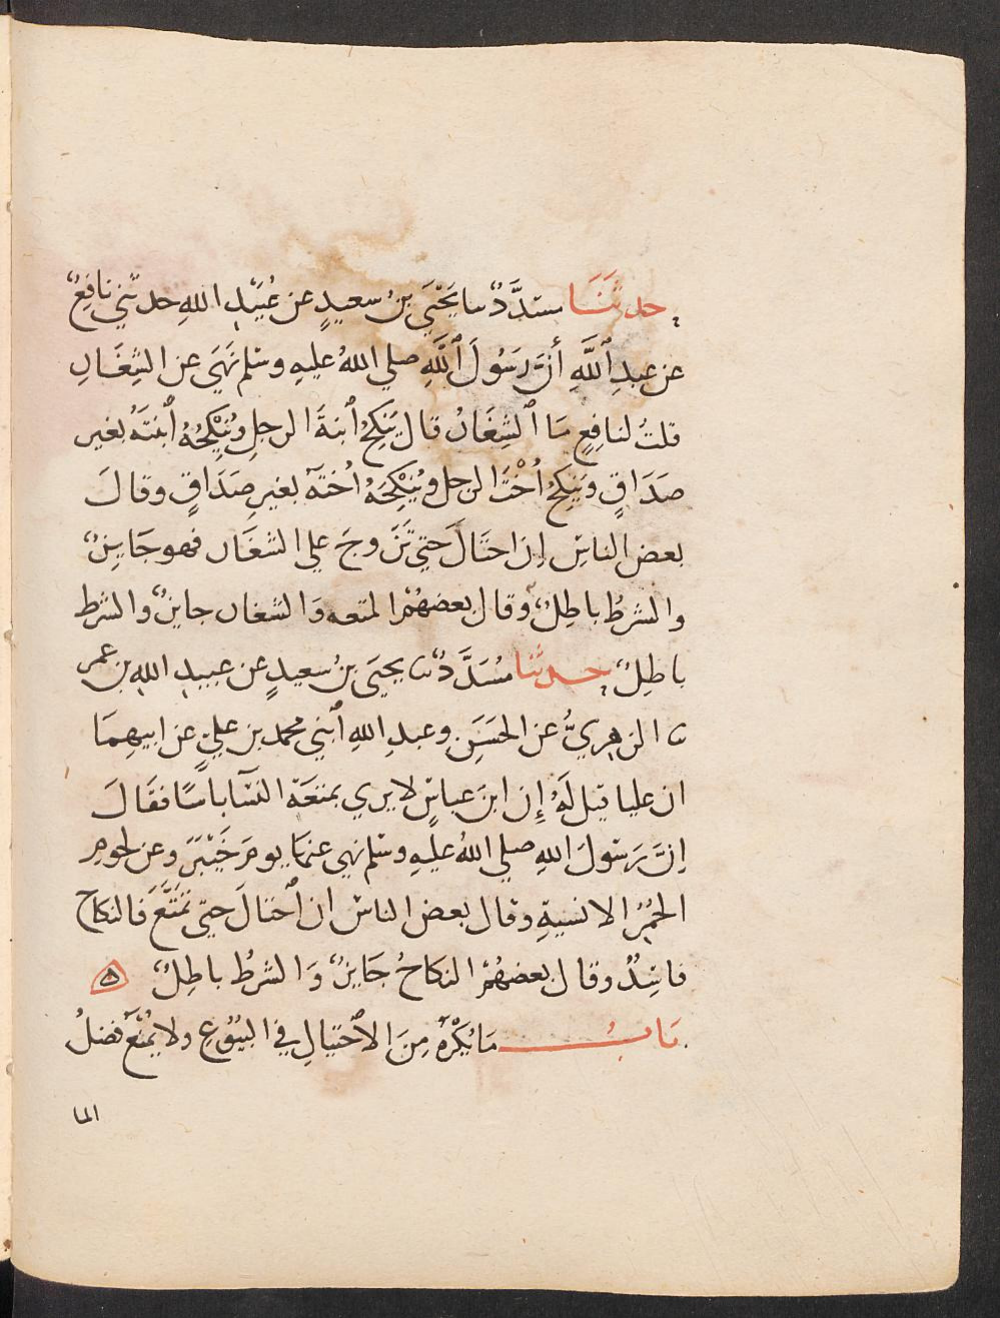 حدثنا مسدَّدٌ نا يَحْيَى بنُ سعيدٍ عن عُبَيْدِ اللهِ حدثني نافعٌ
عن عبدِ ٱللَّهِ أنَّ رَسُولَ ٱللَّهِ صلي اللهُ عليهِ وسَلم نَهَى عن الشِغَارِ
قلتُ لنافِعٍ مَا ٱلشِغَارُ قال يَنكِحُ ٱبنةَ الرجلِ ويُنْكِحُهُ ٱبنتَهُ بغير
صَدَاقٍ ويَنكِحُ أُخْتَ الرجل ويُنْكِحُهُ أُختَهُ بغيرِ صَدَاقٍ وقالَ
بعض الناسِ إنِ احتَالَ حتي تَزَوجَ علي الشغَارِ فهو جَايِزٌ
والشرطُ باطِلٌ وقال بعضهُمُ المتعه وَالشغار جايزٌ والشرط
باطِلٌ حدثنا مُسَدَّدٌ نا يحيَى بنُ سعيدٍ عن عبيدِ اللهِ بن عمر
نا الزهريُّ عن الحَسَنِ وعبدِ اللهِ ٱبنَي محمد بن عليٍّ عن ابيهِمَا
ان عليا قيل لَهُ إِن ابنَ عباسٍ لا يري بمتعَة النسَآ باسًا فقَالَ
إنَّ رَسُولَ اللهِ صلي اللهُ عليهِ وسَلم نهي عنها يومَ خَيْبَرَ وعن لحومِ
الحُمُرِ الانسيةِ وقال بعض الناسِ ان ٱحتالَ حتي تمَتَّعَ فالنكاح
فاسِدٌ وقال بعضهُمُ النكاحُ جَايزٌ وَالشرطُ باطِلٌ ه
بَابُ مَا يُكْرَهُ مِنَ الاحتيالِ في البيُوعِ ولا يُمْنَعُ فضلُ
الما